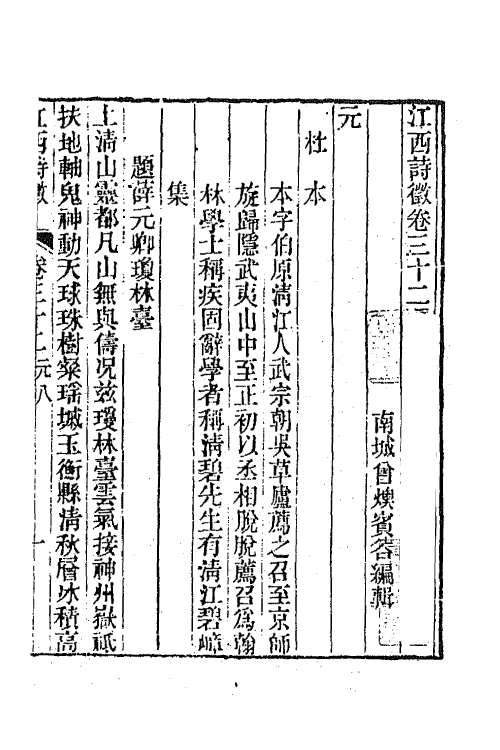 江西詩徵卷三十二
南城曾燠賓谷編輯
元
杜本
本字伯原淸江人武宗朝吳草廬薦之召至京師
旋歸隱武夷山中至正初以丞相脫脫薦召爲翰
林學士稱疾固辭學者稱淸碧先生有淸江碧嶂
集
題薛元卿瓊林臺
上淸山靈都凡山無與儔况兹瓊林臺雲氣接神州嶽祗
扶地軸鬼神動天球珠樹粲瑶城玉衡縣淸秋層冰積高
江西詩徵 卷三十二 元八 一